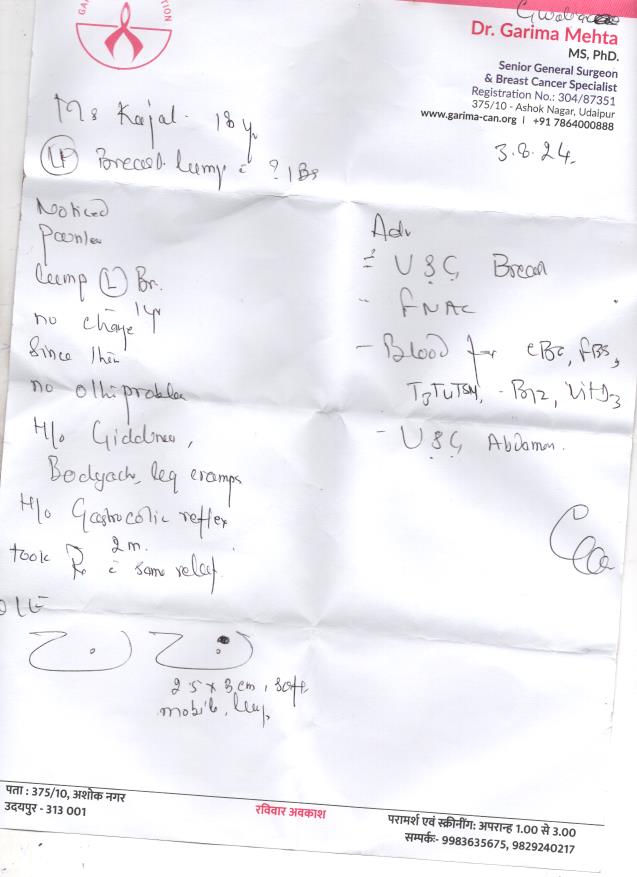 Dr. Garima Mehta
MS, PhD.
Senior General Surgeon
& Breast Cancer Specialist
Registration No.: 304/87351
375/10 - Ashok Nagar, Udaipur
www.garima-can.org | +91 7864000888
3.8.24.
Ms Kajal - 18 yr
Breast lump c ?
Noticed
lump (L) Br.
- 1yr
no change
Since then
no othr problem
H/o Giddines,
Bodyach, leg cramps
H/o Gastrocolic reflex
2m.
took Rx c some relief.
O/E
2.5 x 3cm, soft
mobile, lump
Adv
- USG Breast
- FNAC
- Blood for CBC, FBS,
T3T4TSH, - B12, Vit D3
- USG Abdomen.
पता : 375/10, अशोक नगर
उदयपुर - 313 001
रविवार अवकाश
परामर्श एवं स्क्रीनिंग: अपरान्ह 1.00 से 3.00
सम्पर्क:- 9983635675, 9829240217